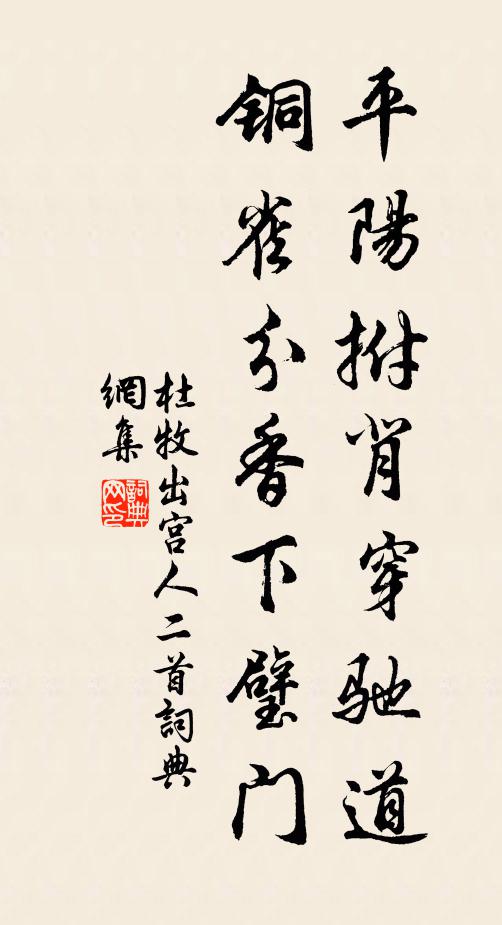 平陽拊背穿馳道
銅雀分香下璧门
杜牧出宮人二首詞典
網集
詞典
网印